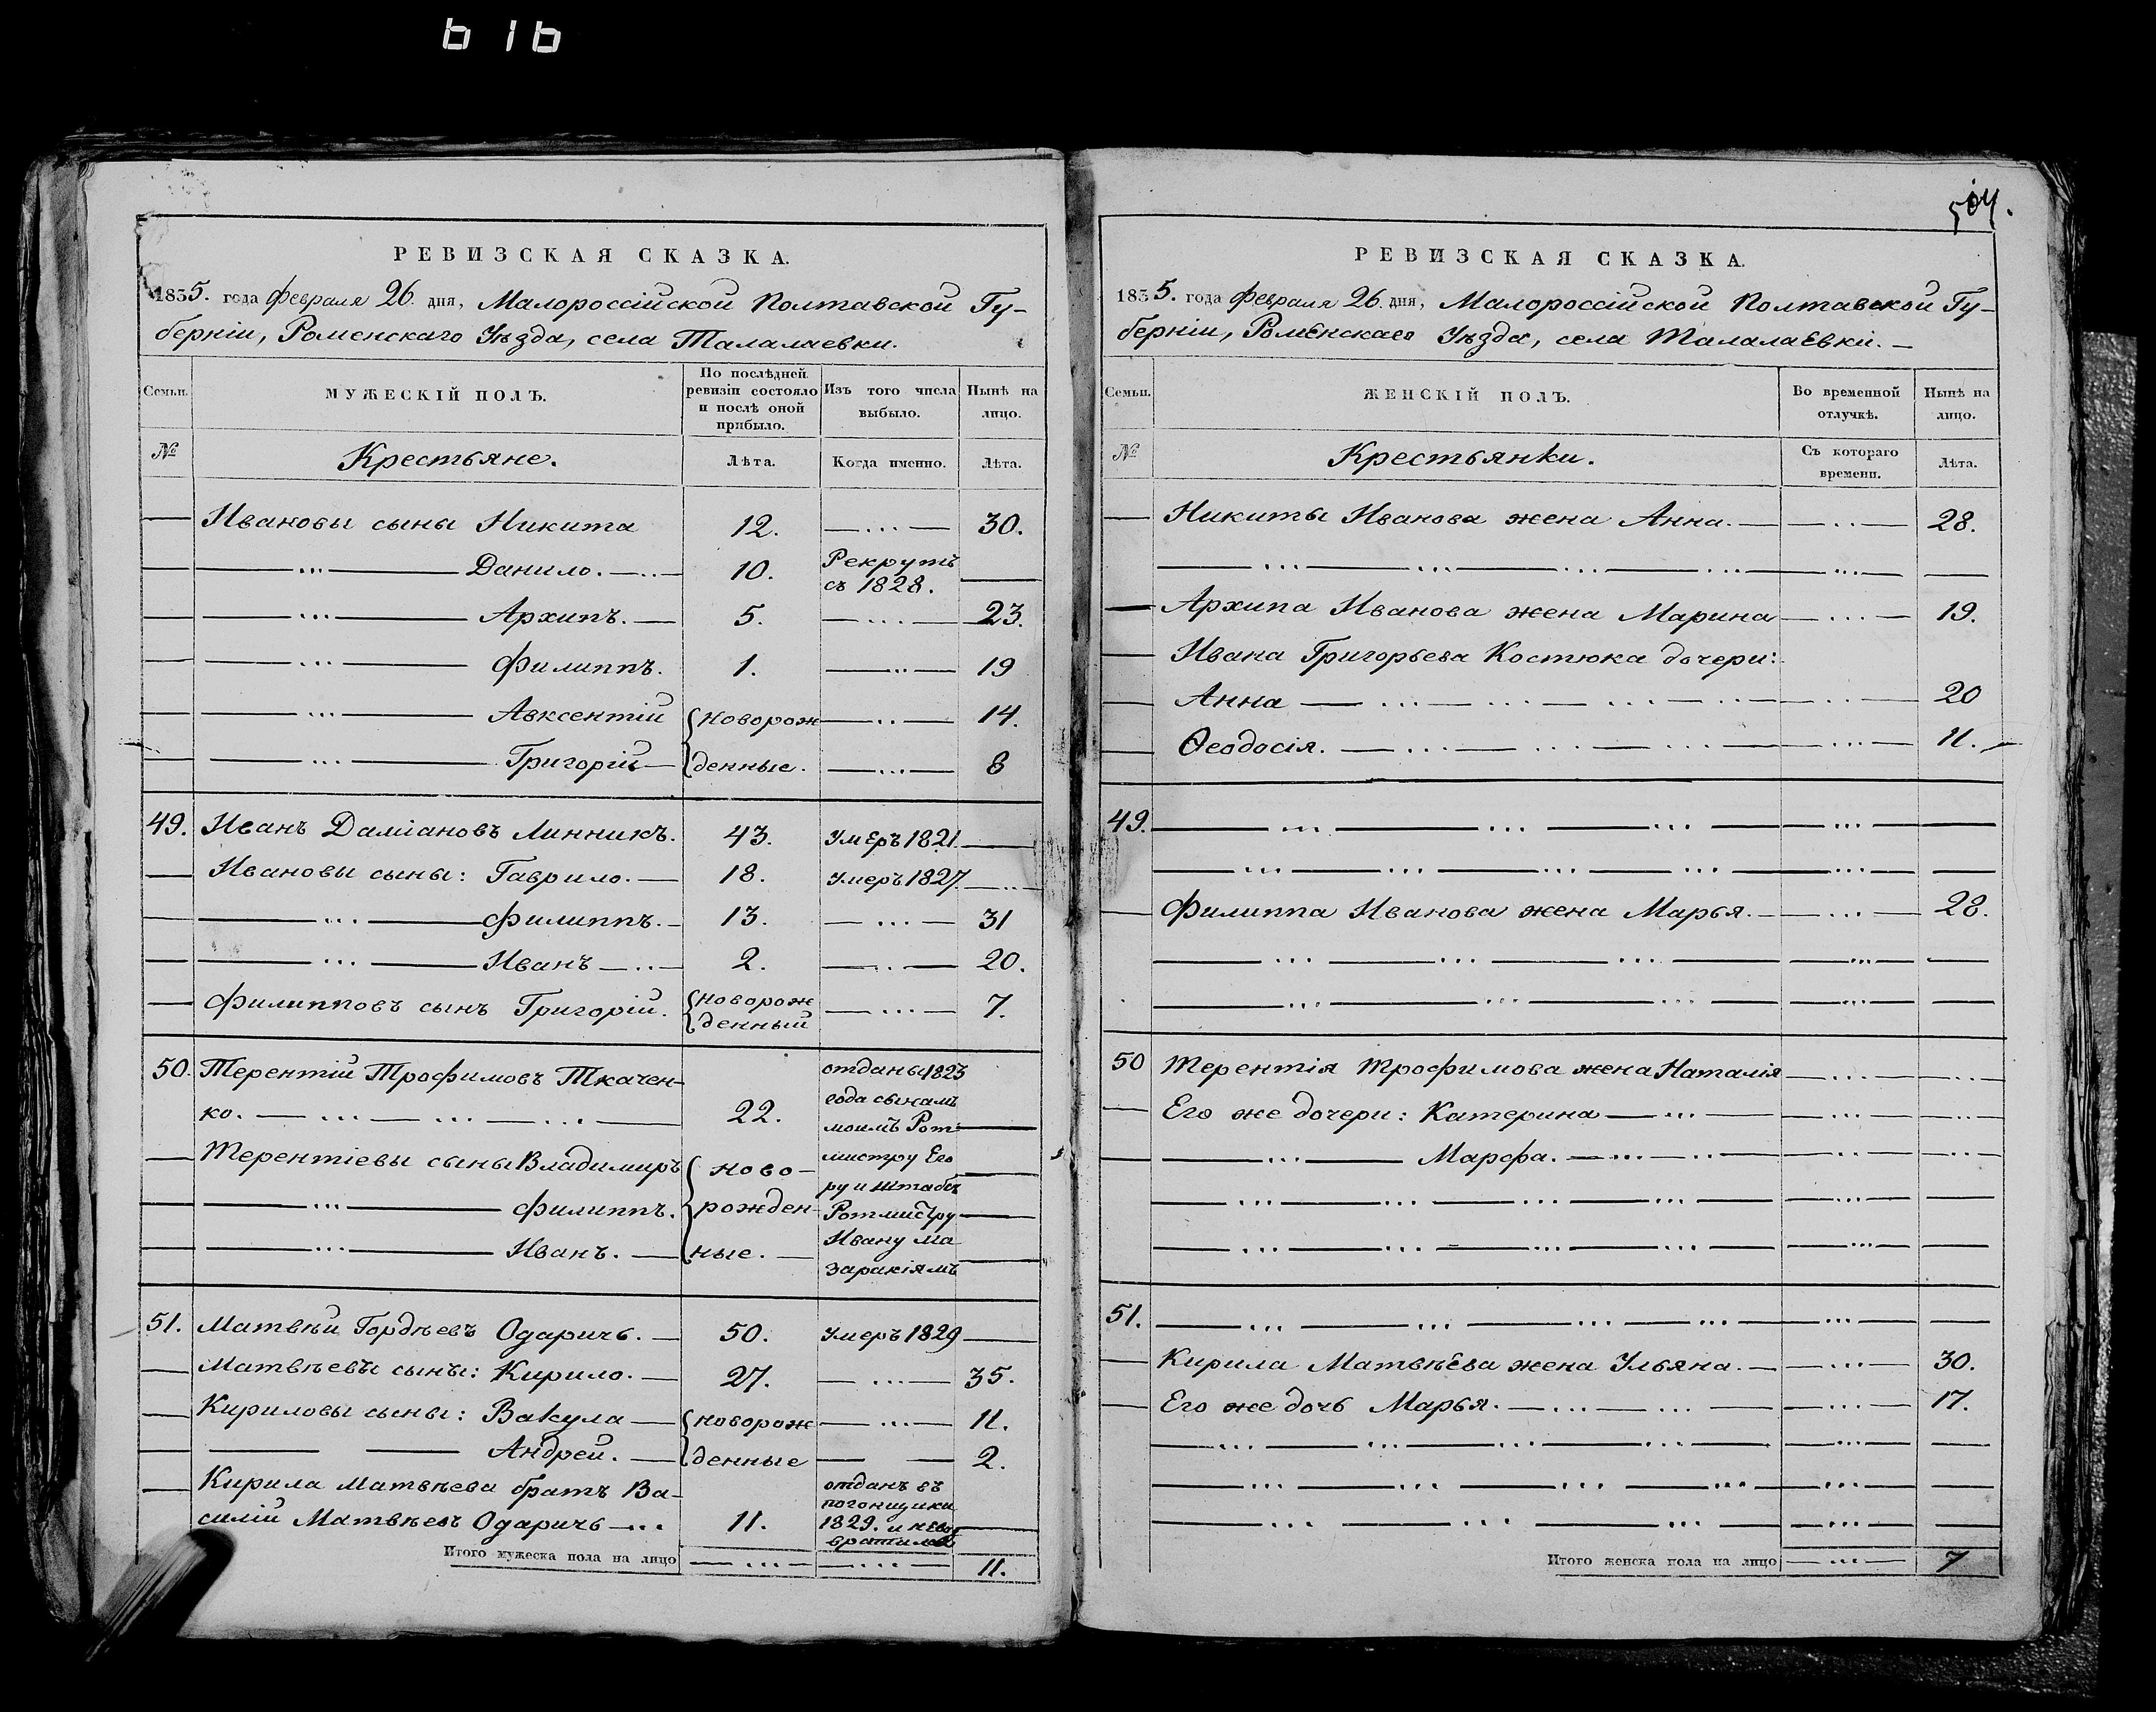 616
РЕВИЗСКАЯ СКАЗКА.
1835. года Февраля 26. дня, Малороссійской Полтавской Гу-
берніи, Роменскаго Уѣзда, села Талалаевки.
Семьи.
МУЖЕСКІЙ ПОЛЪ.
По послѣдней ревизіи состояло и послѣ оной прибыло.
Изъ того числа выбыло.
Нынѣ на лицо.
№
Крестьяне.
Лѣта.
Когда именно.
Лѣта.
Ивановы сыны Никита 12. 30.
Данило. 10. Рекрутъ съ 1828.
Архипъ. 5. 23.
Филиппъ. 1. 19
Авксентій новорож 14.
Григорій денные. 8
49. Иванъ Даміановъ Линникъ. 43. Умеръ 1821.
Ивановы сыны: Гаврило. 18. Умеръ 1827.
Филиппъ. 13. 31
Иванъ 2. 20.
Филипповъ сынъ Григорій. новорож денный 7.
50. Терентій Трофимовъ Ткачен-
ко. 22.
Терентіевы сыны Владимиръ ново-
Филиппъ. рожден-
Иванъ. ные.
отданы 1823
года сынамъ
моимъ Рот-
мистру Его
ру и Штабъ
Ротмистру
Ивану Ма
заракіямъ
51. Матвѣй Гордѣевъ Одаричь. 50. Умеръ 1829
Матвѣевы сыны: Кирило. 27. 35.
Кириловы сыны: Вакула новорож 11.
Андрей. денные 2.
Кирила Матвѣева братъ Ва-
силій Матвѣевъ Одаричь 11.
отданъ въ
погонщики
1829. и невоз
вратился
Итого мужеска пола на лицо 11.
504.
РЕВИЗСКАЯ СКАЗКА.
1835. года Февраля 26. дня, Малороссійской Полтавской Гу-
берніи, Роменскаго Уѣзда, села Талалаевки.
Семьи.
ЖЕНСКІЙ ПОЛЪ.
Во временной отлучкѣ.
Нынѣ на лицо.
№
Крестьянки.
Съ котораго времени.
Лѣта.
Никиты Иванова жена Анна. 28.
Архипа Иванова жена Марина 19.
Ивана Григорьева Костюка дочери:
Анна 20
Ѳеодосія. 11.
49.
Филиппа Иванова жена Марья. 28.
50 Терентія Трофимова жена Наталія
Его же дочери: Катерина
Марфа.
51.
Кирила Матвѣева жена Ульяна. 30.
Его же дочь Марья. 17.
Итого женска пола на лицо 7